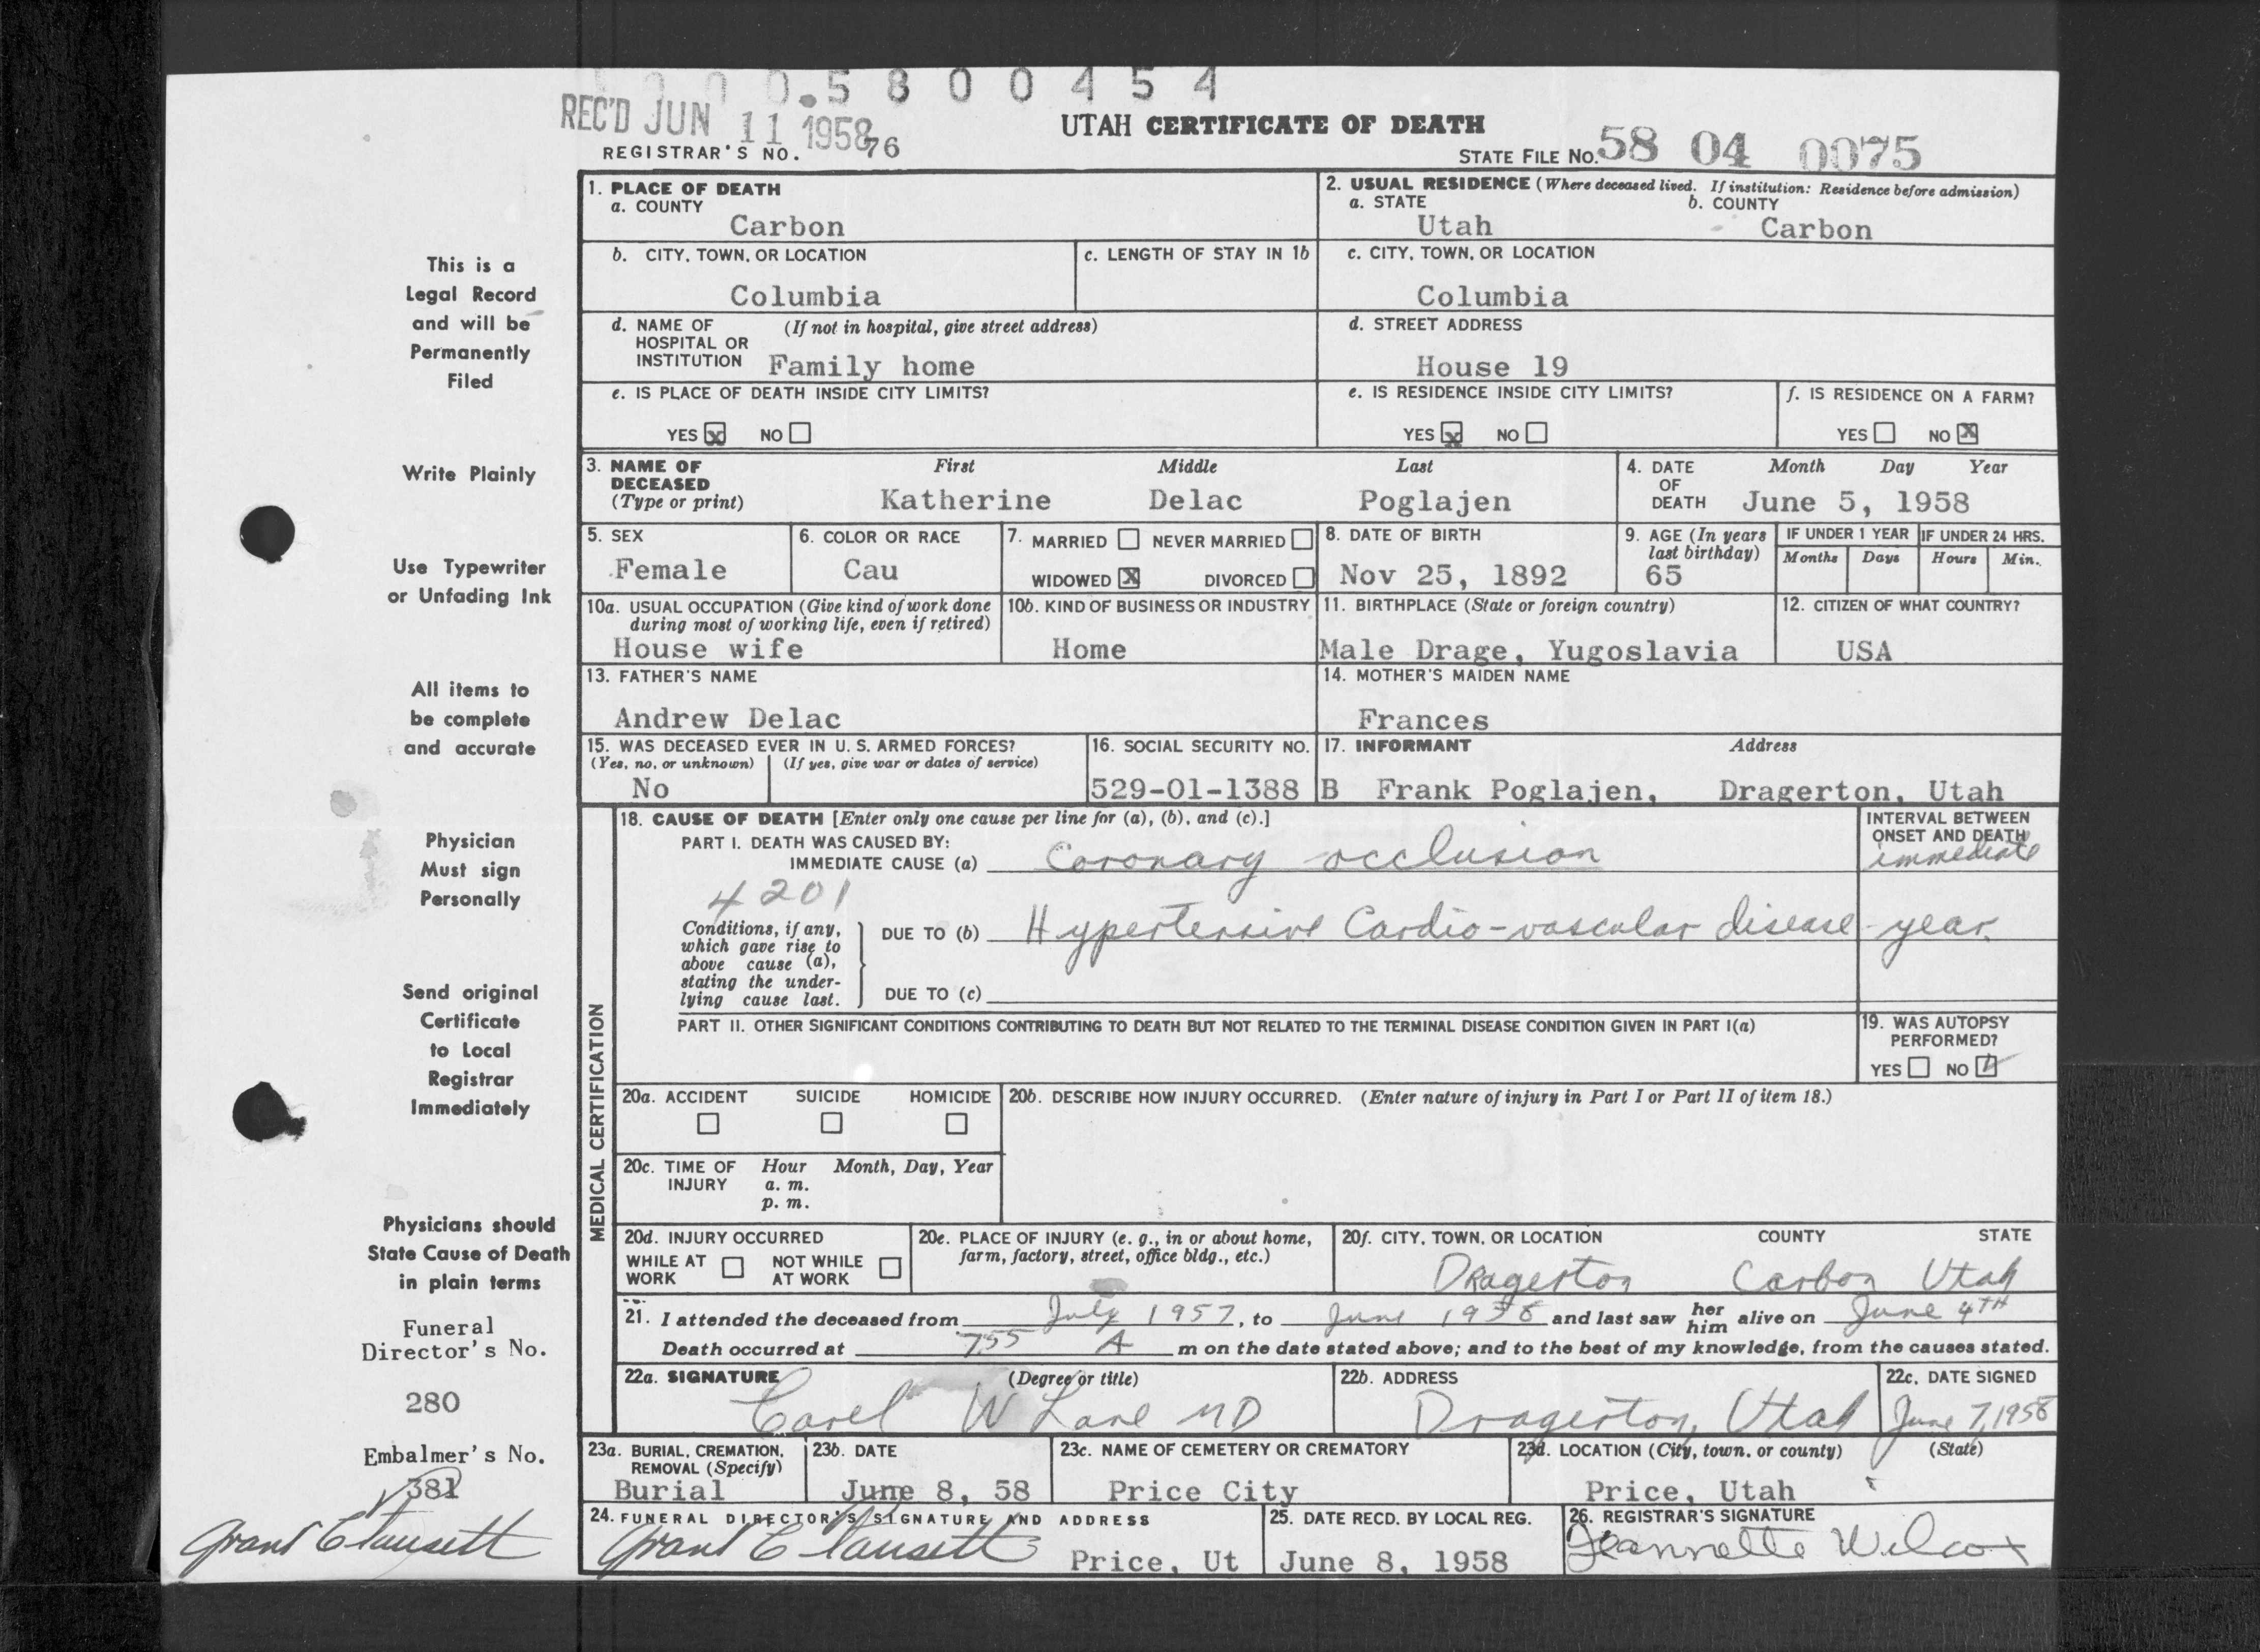 0.5 8 0 0 4 5 4
REC'D JUN 11 1958
UTAH CERTIFICATE OF DEATH
REGISTRAR'S NO. 76
STATE FILE NO. 58 04 0075
1. PLACE OF DEATH
a. COUNTY
Carbon
2. USUAL RESIDENCE (Where deceased lived. If institution: Residence before admission)
a. STATE b. COUNTY
Utah Carbon
b. CITY, TOWN, OR LOCATION
Columbia
c. LENGTH OF STAY IN 1b
c. CITY, TOWN, OR LOCATION
Columbia
d. NAME OF HOSPITAL OR INSTITUTION (If not in hospital, give street address)
Family home
d. STREET ADDRESS
House 19
e. IS PLACE OF DEATH INSIDE CITY LIMITS?
YES x NO
e. IS RESIDENCE INSIDE CITY LIMITS?
YES x NO
f. IS RESIDENCE ON A FARM?
YES NO x
3. NAME OF DECEASED (Type or print)
First Middle Last
Katherine Delac Poglajen
4. DATE OF DEATH
Month Day Year
June 5, 1958
5. SEX
Female
6. COLOR OR RACE
Cau
7. MARRIED NEVER MARRIED
WIDOWED x DIVORCED
8. DATE OF BIRTH
Nov 25, 1892
9. AGE (In years last birthday)
65
IF UNDER 1 YEAR
Months Days
IF UNDER 24 HRS.
Hours Min.
10a. USUAL OCCUPATION (Give kind of work done during most of working life, even if retired)
House wife
10b. KIND OF BUSINESS OR INDUSTRY
Home
11. BIRTHPLACE (State or foreign country)
Male Drage, Yugoslavia
12. CITIZEN OF WHAT COUNTRY?
USA
13. FATHER'S NAME
Andrew Delac
14. MOTHER'S MAIDEN NAME
Frances
15. WAS DECEASED EVER IN U. S. ARMED FORCES?
(Yes, no, or unknown) (If yes, give war or dates of service)
No
16. SOCIAL SECURITY NO.
529-01-1388 B
17. INFORMANT Address
Frank Poglajen, Dragerton, Utah
MEDICAL CERTIFICATION
18. CAUSE OF DEATH [Enter only one cause per line for (a), (b), and (c).]
PART I. DEATH WAS CAUSED BY:
IMMEDIATE CAUSE (a) Coronary occlusion
INTERVAL BETWEEN ONSET AND DEATH
immediate
4201
Conditions, if any, which gave rise to above cause (a), stating the underlying cause last.
DUE TO (b) Hypertensive Cardio-vascular disease year
DUE TO (c)
PART II. OTHER SIGNIFICANT CONDITIONS CONTRIBUTING TO DEATH BUT NOT RELATED TO THE TERMINAL DISEASE CONDITION GIVEN IN PART I(a)
19. WAS AUTOPSY PERFORMED?
YES NO
20a. ACCIDENT SUICIDE HOMICIDE
20b. DESCRIBE HOW INJURY OCCURRED. (Enter nature of injury in Part I or Part II of item 18.)
20c. TIME OF INJURY Hour Month, Day, Year
a. m.
p. m.
20d. INJURY OCCURRED
WHILE AT WORK NOT WHILE AT WORK
20e. PLACE OF INJURY (e. g., in or about home, farm, factory, street, office bldg., etc.)
20f. CITY, TOWN, OR LOCATION COUNTY STATE
Dragerton Carbon Utah
21. I attended the deceased from July 1957, to June 1958 and last saw her him alive on June 4TH
Death occurred at 755 A m on the date stated above; and to the best of my knowledge, from the causes stated.
22a. SIGNATURE (Degree or title)
Carel W Lane MD
22b. ADDRESS
Dragerton, Utah
22c. DATE SIGNED
June 7, 1958
23a. BURIAL, CREMATION, REMOVAL (Specify)
Burial
23b. DATE
June 8, 58
23c. NAME OF CEMETERY OR CREMATORY
Price City
23d. LOCATION (City, town, or county) (State)
Price, Utah
24. FUNERAL DIRECTOR'S SIGNATURE AND ADDRESS
Grant C Fausett Price, Ut
25. DATE RECD. BY LOCAL REG.
June 8, 1958
26. REGISTRAR'S SIGNATURE
Jeannette Wilcox
This is a
Legal Record
and will be
Permanently
Filed
Write Plainly
Use Typewriter
or Unfading Ink
All items to
be complete
and accurate
Physician
Must sign
Personally
Send original
Certificate
to Local
Registrar
Immediately
Physicians should
State Cause of Death
in plain terms
Funeral
Director's No.
280
Embalmer's No.
381
Grant C Fausett